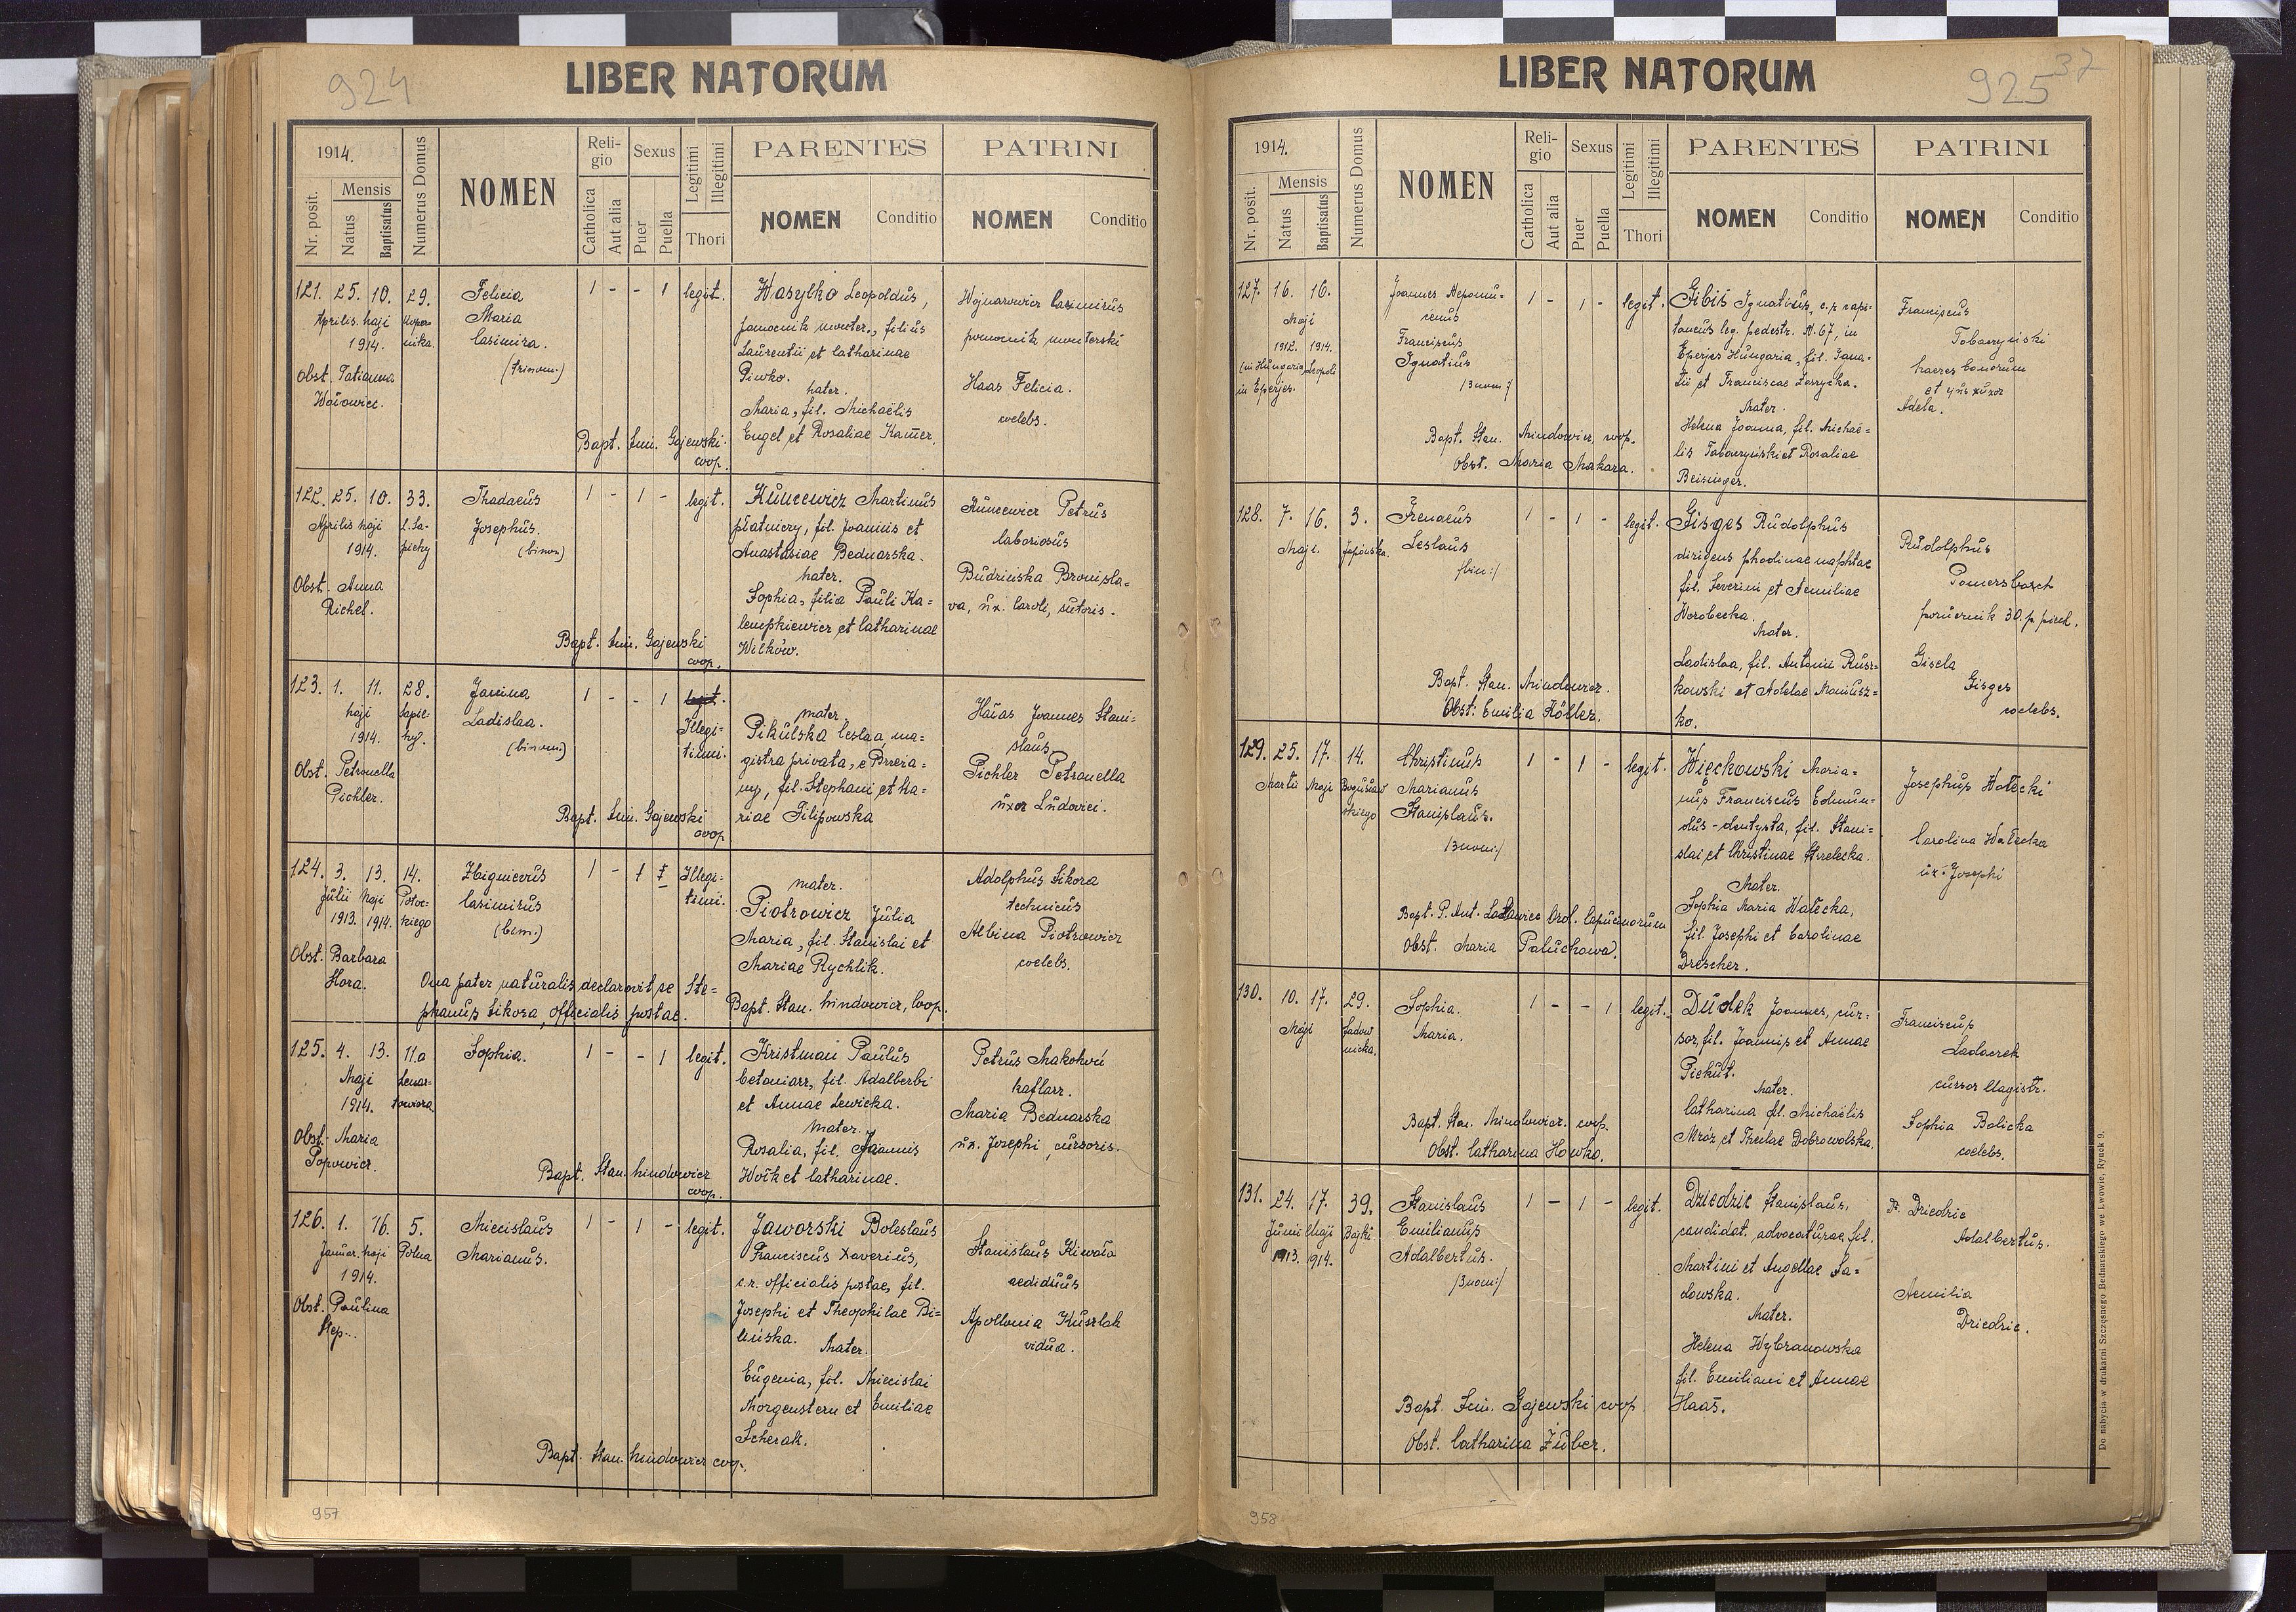 924
LIBER NATORUM
1914.
Nr. posit.
Mensis
Natus
Baptisatus
Numerus Domus
NOMEN
Religio
Catholica
Aut alia
Sexus
Puer
Puella
Legitimi
Illegitimi
Thori
PARENTES
NOMEN
Conditio
PATRINI
NOMEN
Conditio
121. 25. 10. 29.
Aprilis. Maji Koper-
1914. nika.
Obst. Tatianna
Felicia
Maria
Casimira.
(trinom.)
1 - - 1 legit.
Bapt. Sim. Gajewski
coop.
Wasylko Leopoldus,
pomocnik monter., filius
Laurentii et Catharinae
Piwko.
Mater.
Maria, fil. Michaëlis
Engel et Rosaliae Kamer.
Wojnarowicz Casimirus
pomocnik monterski
Haas Felicia.
coelebs.
122. 25. 10. 33.
Aprilis Maji L. Sa-
1914. piehy
Obst. Anna
Richel.
Thadaeus
Josephus.
(binom)
1 - 1 - legit.
Bapt. Sim. Gajewski
coop.
Kuncewicz Martinus
płatniczy, fil. Joannis et
Anastasiae Bednarska.
Mater.
Sophia, filia Pauli Ka=
lempkiewicz et Catharinae
Wilków.
Kuncewicz Petrus
laboriosus
Budzińska Bronisla=
va, ux. Caroli, sutoris.
123. 1. 11. 28.
Maji Sapie-
1914. hy.
Obst. Petronella
Pichler.
Janina
Ladislaa.
(binom)
1 - - 1 legit.
Illegi-
timi.
Bapt. Sim. Gajewski
coop
mater
Pikulska Ceslaa, ma=
gistra privata, e Brzeża-
ny, fil. Stephani et Ma=
riae Filipowska
Hałas Joannes Stani-
slaus
Pichler Petronella
uxor Ludovici.
124. 3. 13. 14.
Julii Maji Potoc-
1913. 1914. kiego
Obst. Barbara
Hora.
Zbigniewus
Casimirus
(bim.)
1 - 1 Illegi=
timi.
Qua pater naturalis declaravit se Ste=
phanus Sikora, officialis postae.
mater.
Piotrowicz Julia
Maria, fil. Stanislai et
Mariae Rychlik.
Bapt. Stan. Mindowicz, Coop.
Adolphus Sikora
technicus
Albina Piotrowicz
coelebs.
125. 4. 13. 11.a
Maji Lenar-
1914. towicza
Obst. Maria
Popowicz.
Sophia.
1 - - 1 legit.
Bapt. Stan. Mindowicz
coop.
Kristman Paulus
betoniarz, fil. Adalberti
et Annae Lewicka.
Mater.
Rosalia, fil. Joannis
Woźk et Catharinae.
Petrus Makohoń
kaflarz.
Maria Bednarska
ux. Josephi, cursoris.
126. 1. 16. 5.
Januar. Maji Polna
1914.
Obst. Paulina
Step..
Miecislaus
Marianus.
1 - 1 - legit.
Bapt. Stan. Mindowicz coop.
Jaworski Boleslaus
Franciscus Xaverius,
c.r. officialis postae, fil.
Josephi et Theophilae Bi=
lińska.
Mater.
Eugenia, fil. Miecislai
Morgenstern et Emiliae
Scherak.
Stanislaus Kiwała
aedituus
Apollonia Kusztak
vidua.
957
925
37
LIBER NATORUM
1914.
Nr. posit.
Mensis
Natus
Baptisatus
Numerus Domus
NOMEN
Religio
Catholica
Aut alia
Sexus
Puer
Puella
Legitimi
Illegitimi
Thori
PARENTES
NOMEN
Conditio
PATRINI
NOMEN
Conditio
127. 16. 16.
Maji
1912. 1914.
(in Hungaria Leopoli
in Eperjes.
Joannes Nepomu-
cenus
Franciscus
Ignatius
/3nom:/
1 - 1 - legit.
Bapt. Stan. Mindowicz, coop.
Obst. Maria Makara.
Gibis Ignatius, c.r. capi-
taneus leg. pedestr. N. 67, in
Eperjes Hungaria, fil. Igna-
tii et Franciscae Zarzycka.
Mater.
Helena Joanna, fil. Michaë=
lis Tobaczyński et Rosaliae
Beisinger.
Franciscus
Tobaczyński
haeres bonorum
et ejus uxor
Adela.
128. 7. 16. 3.
Maji.
Irenaeus
Ceslaus
/bin:/
1 - 1 - legit.
Bapt. Stan. Mindowicz.
Obst: Emilia Köller.
Gisges Rudolphus
dirigens phodinae naphtae
fil. Severini et Aemiliae
Worobecka.
Mater.
Ladislaa, fil. Antonii Rusz-
kowski et Adelae Maniusz=
ko.
Rudolphus
Pomersbach
porucznik 30. p. piech.
Gisela
Gisges
coelebs.
129. 25. 17. 14.
Martii Maji Bogusław
skiego
Christinus
Marianus
Stanislaus.
/3nom:/
1 - 1 - legit.
Bapt. P. Ant. Ord. Capucinorum
Obst. Maria Paluchowa.
Więckowski Maria=
nus Franciscus Edmun-
dus - dentysta, fil. Stani=
slai et Christinae Strzelecka.
Mater.
Sophia Maria Wałecka,
fil. Josephi et Carolinae
Drescher.
Josephus Wałecki
Carolina Wałecka
ux. Josephi
130. 10. 17. 29.
Maji Sadow
nicka.
Sophia.
Maria.
1 - - 1 legit.
Bapt. Stan. Mindowicz. coop.
Obst. Catharina Howko.
Dudek Joannes, cur-
sor, fil. Joannis et Annae
Piekut.
Mater.
Catharina fil. Michaëlis
Mróz et Theclae Dobrowolska.
Franciscus
Ladaczek
cursor Magistr.
Sophia Bolicka
coelebs.
131. 24. 17. 39.
Junii Maji Bajki.
1913. 914.
Stanislaus
Emilianus
Adalbertus.
/3nom:/
1 - 1 - legit.
Bapt. Sim. Gajewski coop
Obst. Catharina Żuber.
Dziedzic Stanislaus,
candidat. advocaturae, fil.
Martini et Angellae Sa=
dowska.
Mater.
Helena Wybranowska
fil. Emiliani et Annae
Haas.
Dr. Dziedzic
Adalbertus.
Aemilia
Dziedzic.
Do nabycia w drukarni Szczęsnego Bednarskiego we Lwowie, Rynek 9.
958